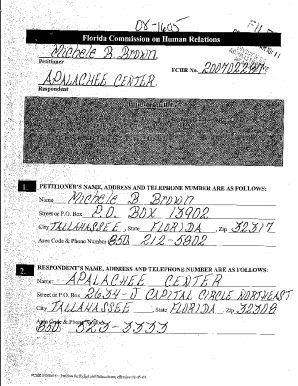 08-1605
Florida Commission on Human Relations
Michele B. Brown
Petitioner
FCHR No. 200702297
APALACHEE CENTER
Respondent
1. PETITIONER'S NAME, ADDRESS AND TELEPHONE NUMBER ARE AS FOLLOWS:
Name Michele B Brown
Street or P.O. Box P.O. BOX 13902
City TALLAHASSEE, State FLORIDA, Zip 32317
Area Code & Phone Number 850 212-5802
2. RESPONDENT'S NAME, ADDRESS AND TELEPHONE NUMBER ARE AS FOLLOWS:
Name: APALACHEE CENTER
Street or P.O. Box 2634-J CAPITAL CIRCLE NORTHEAST
City TALLAHASSEE State FLORIDA, Zip 32308
Area Code & Phone
850 523-3333